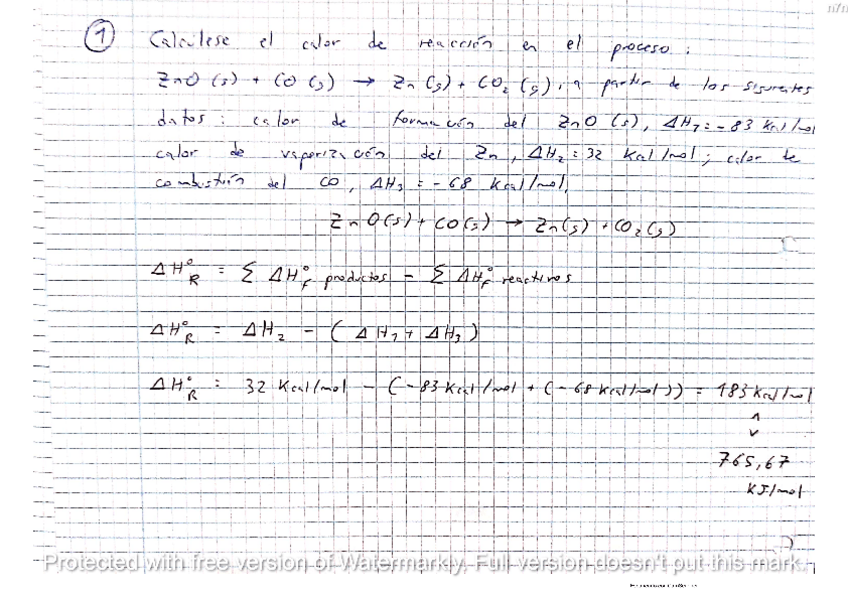 1 Calculese el calor de reacción en el proceso:
ZnO (s) + CO (g) → Zn (g) + CO₂ (g), a partir de los siguientes
datos: calor de formación del ZnO (s), ΔH₁ = - 83 Kcal/mol
calor de vaporización del Zn, ΔH₂ = 32 Kcal/mol; calor de
combustión del CO, ΔH₃ = - 68 Kcal/mol.
ZnO(s) + CO(g) → Zn(g) + CO₂(g)
ΔH°R = Σ ΔH°f productos - Σ ΔH°f reactivos
ΔH°R = ΔH₂ - (ΔH₁ + ΔH₃)
ΔH°R = 32 Kcal/mol - (-83 Kcal/mol + (-68 Kcal/mol)) = 183 Kcal/mol
765,67
KJ/mol
Protected with free version of Watermarkly. Full version doesn't put this mark.